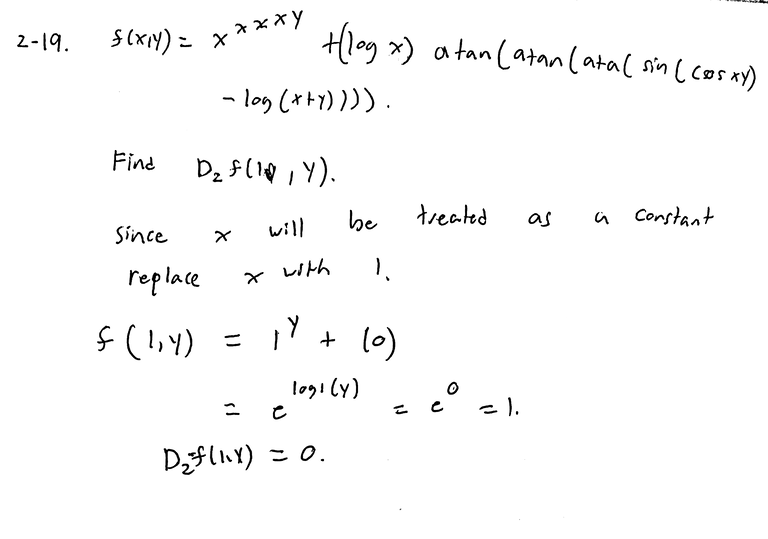 2-19. f(x,y) = x^x^x^x^y + (log x) atan(atan(ata( sin(cos xy)
- log(x+y)))).
Find D₂ f(1, y).
Since x will be treated as a constant
replace x with 1.
f(1,y) = 1^y + (0)
= e^log1(y) = e^0 = 1.
D₂f(1,y) = 0.